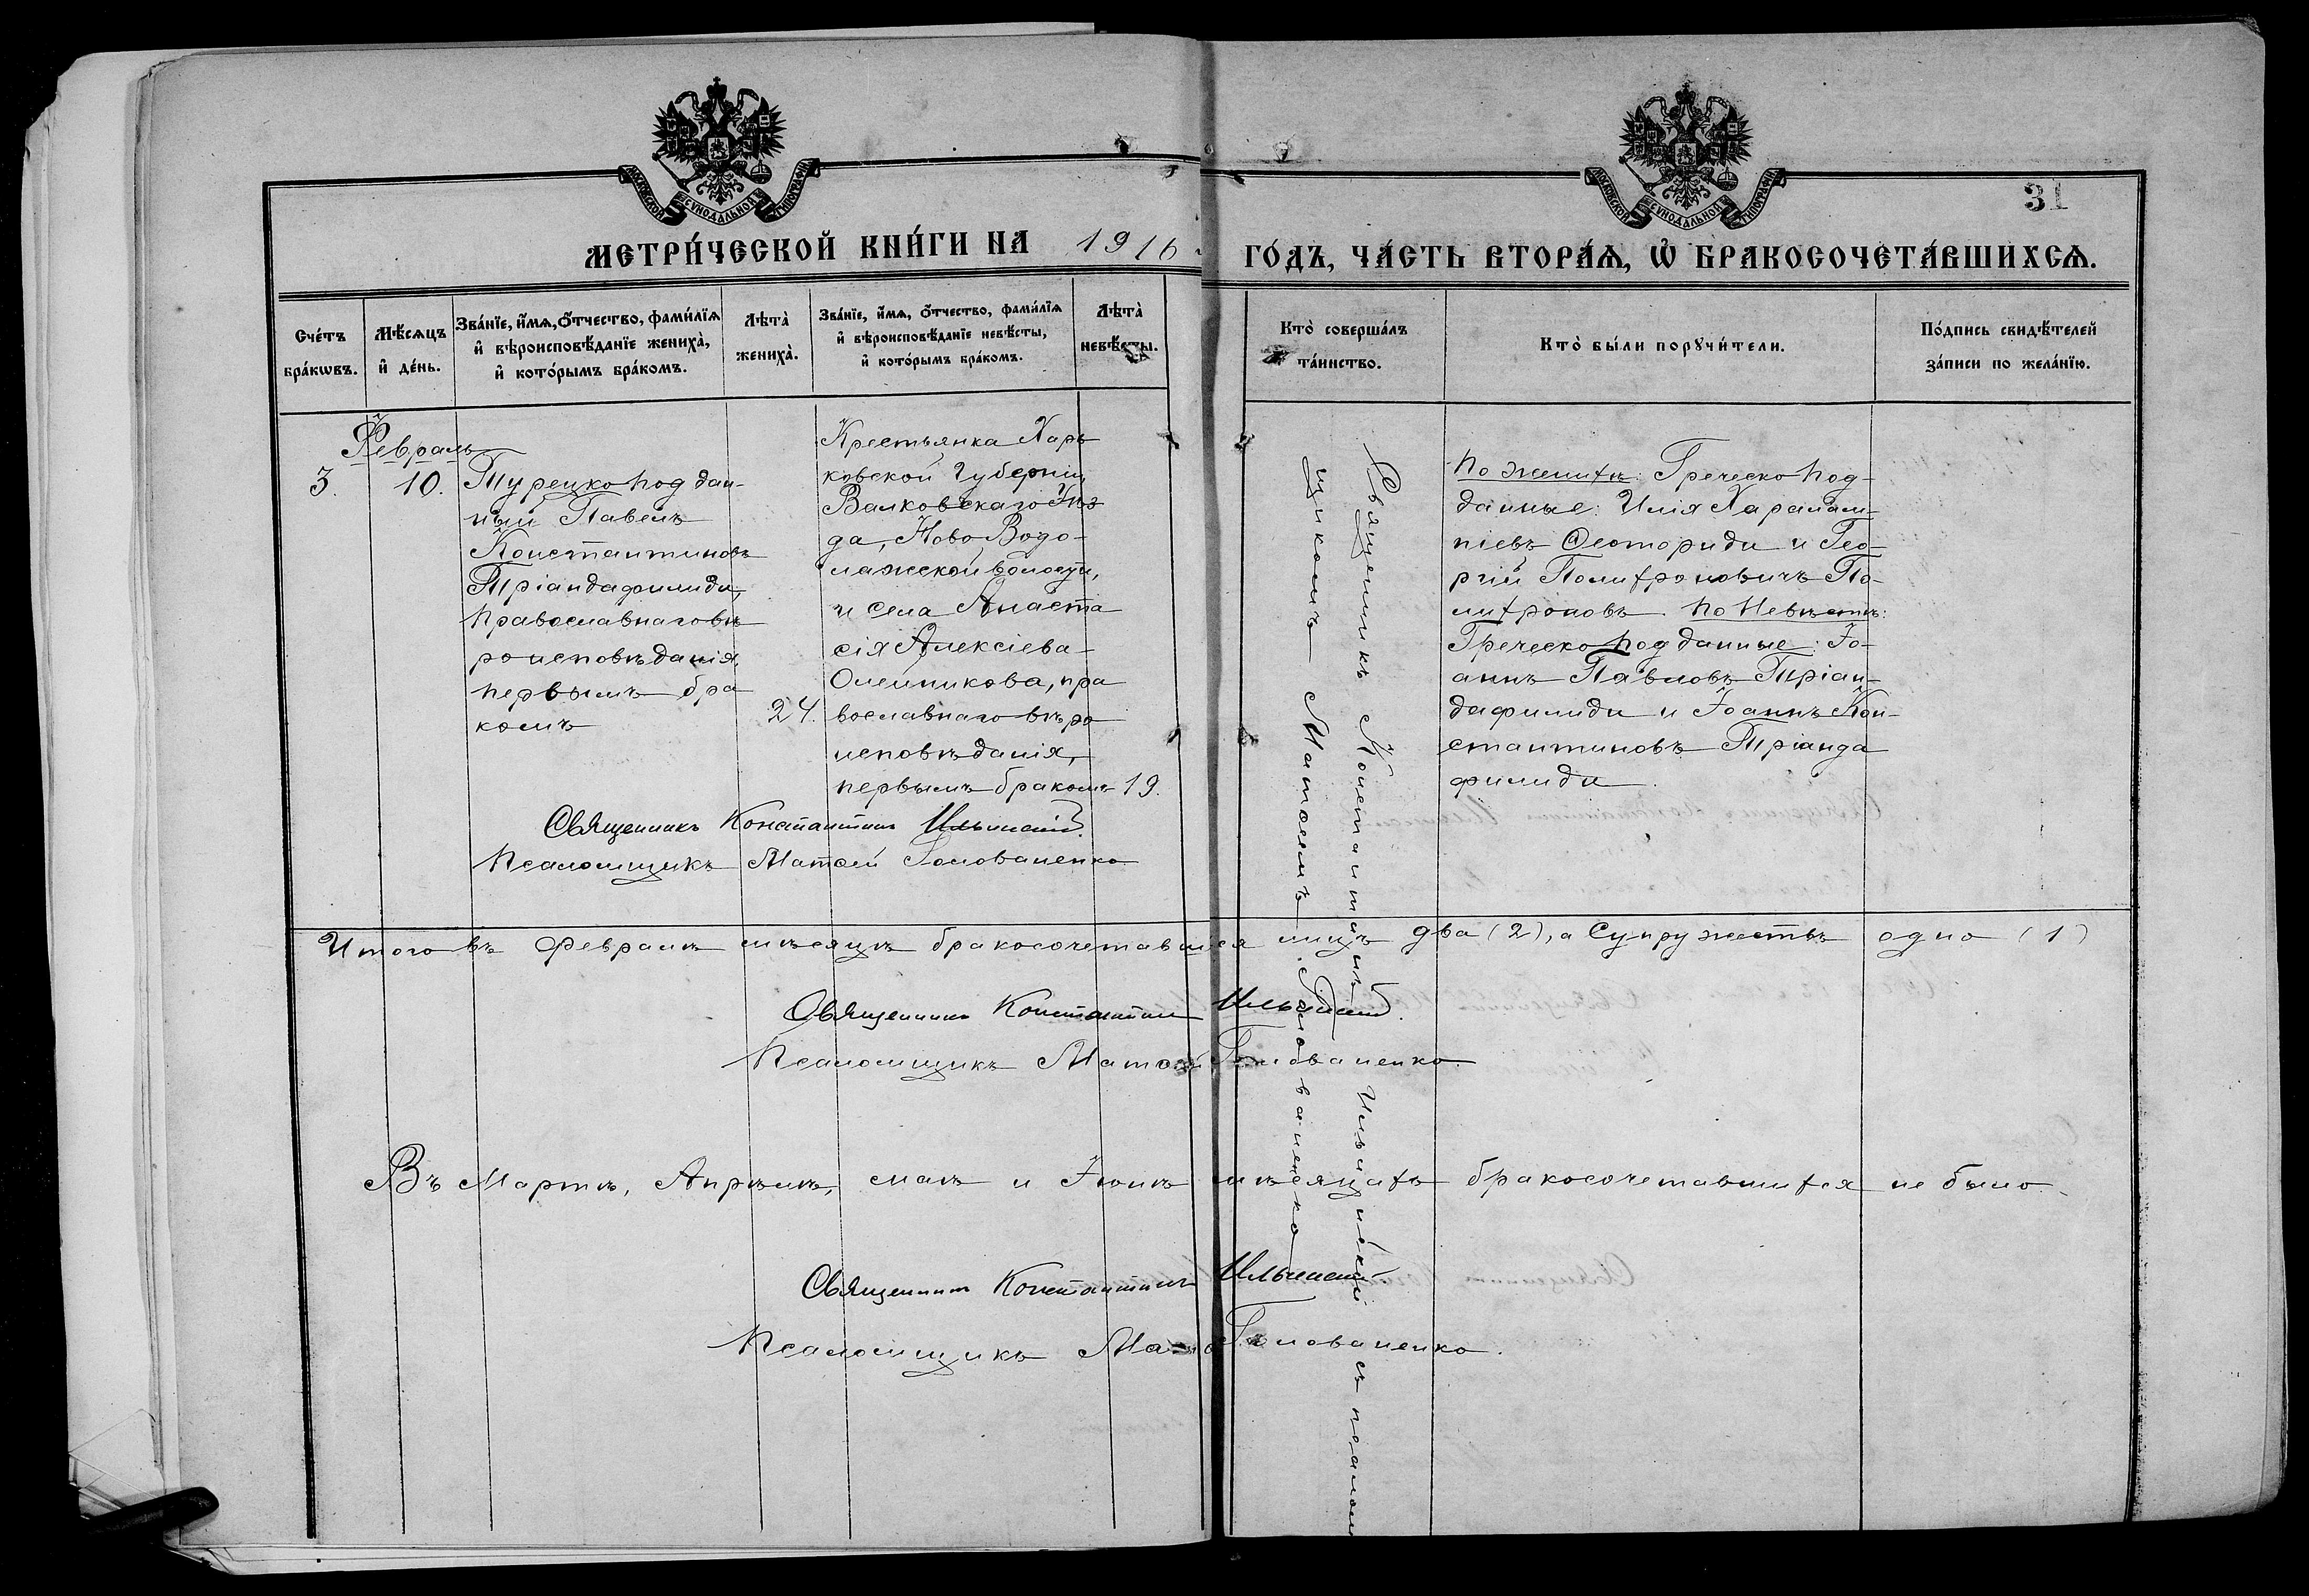 МОСКОВСКОЙ СУНОДАЛЬНОЙ ТИПОГРАФІИ
МОСКОВСКОЙ СУНОДАЛЬНОЙ ТИПОГРАФІИ
31
МЕТРИ́ЧЕСКОЙ КНИ́ГИ НА 1916
ГО́ДЪ, ЧА́СТЬ ВТОРА́Ѧ, Ѡ҆ БРАКОСОЧЕТА́ВШИХСѦ.
Сче́тъ бра́кѡвъ.
Мѣ́сѧцъ и҆ де́нь.
Зва́нїе, и҆́мѧ, ѻ҆́тчество, фами́лїѧ
и҆ вѣроисповѣ́данїе жениха̀,
и҆ кото́рымъ бра́комъ.
Лѣта̀ жениха̀.
Зва́нїе, и҆́мѧ, ѻ҆́тчество, фами́лїѧ
и҆ вѣроисповѣ́данїе невѣ́сты,
и҆ кото́рымъ бра́комъ.
Лѣта̀ невѣ́сты.
Кто̀ соверша́лъ
та́инство.
Кто̀ бы́ли порꙋчи́тели.
По́дпись свидѣ́телей
за́писи по жела́нїю.
Февраль
3. 10.
Турецко подан-
ный Павелъ
Константиновъ
Тріандафилиди,
православнаго вѣ
роисповѣданія,
первымъ бра
комъ
24.
Крестьянка Харь
ковской Губерніи,
Валковскаго Уѣз
да, Ново Водо-
лажской волости,
и села Анаста
сія Алексіева
Олейникова, пра
вославнаго вѣро
исповѣданія,
первымъ бракомъ 19.
Священникъ Константинъ Ильинскій съ псаломщикомъ Матѳемъ Голованенко
По женихѣ: Греческо под-
данные: Илія Харалам-
піевъ Ѳеоториди и Гео-
ргій Полихроновичъ По-
лихроновъ. По Невѣстѣ:
Греческо подданные: Іо-
аннъ Павловъ Тріан-
дафилиди и Іоаннъ Кон-
стантиновъ Тріанда
филиди.
Священникъ Константинъ Ильинскій.
Псаломщикъ Матѳей Голованенко
Итого въ Февралѣ мѣсяцѣ бракосочетавшихся лицъ два (2), а супружествъ одно (1)
Священникъ Константинъ Ильинскій.
Псаломщикъ Матѳей Голованенко.
Въ Мартѣ, Апрѣлѣ, маѣ и Іюнѣ мѣсяцахъ бракосочетавшихся не было.
Священникъ Константинъ Ильинскій
Псаломщикъ Голованенко.